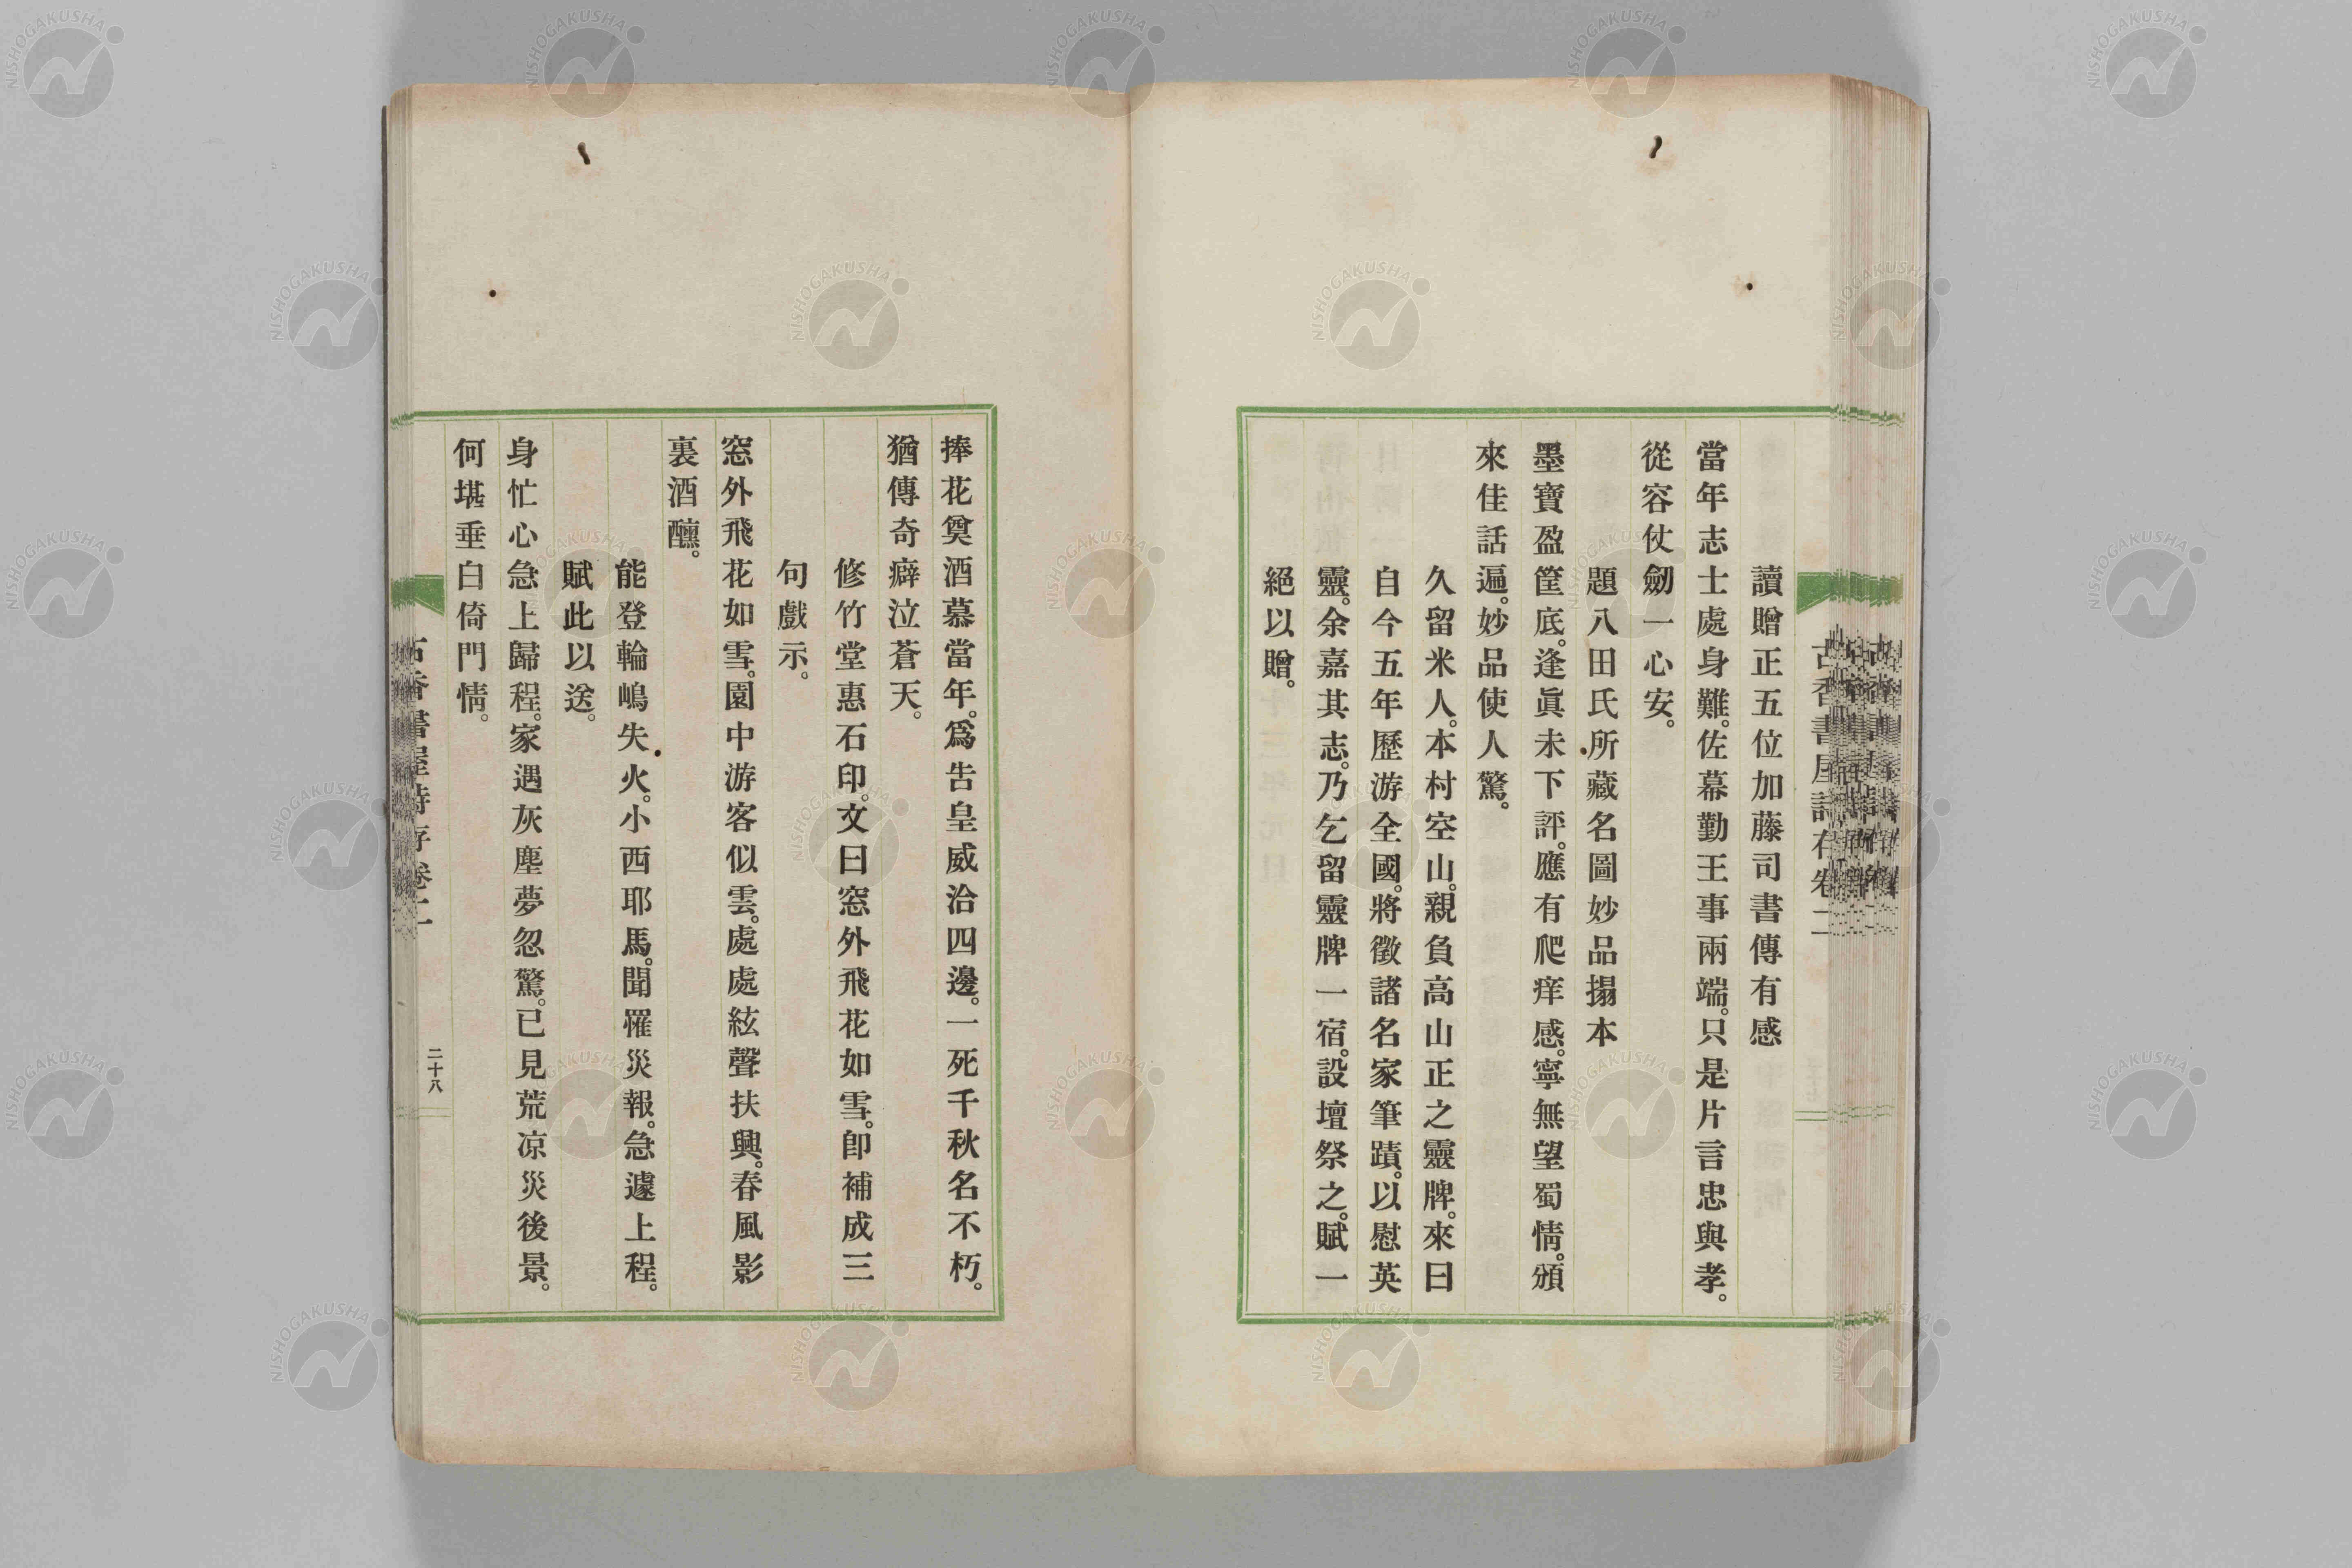 讀贈正五位加藤司書傳有感
當年志士處身難。佐幕勤王事兩端。只是片言忠與孝。
從容仗劒一心安。
題八田氏所藏名圖妙品搨本
墨寶盈筐底。逢眞未下評。應有爬痒感。寧無望蜀情。頒
來佳話遍。妙品使人驚。
久留米人。本村空山。親負高山正之靈牌。來曰
自今五年歷游全國。將徵諸名家筆蹟。以慰英
靈。余嘉其志。乃乞留靈牌一宿。設壇祭之。賦一
絕以贈。
捧花奠酒慕當年。爲告皇威洽四邊。一死千秋名不朽。
猶傳奇癖泣蒼天。
修竹堂惠石印。文曰窓外飛花如雪。卽補成三
句戲示。
窓外飛花如雪。園中游客似雲。處處絃聲扶興。春風影
裏酒醺。
能登輪嶋失火。小西耶馬。聞罹災報。急遽上程。
賦此以送。
身忙心急上歸程。家遇灰塵夢忽驚。已見荒凉災後景。
何堪垂白倚門情。
古香書屋詩存卷二
二十八
NISHOGAKUSHA